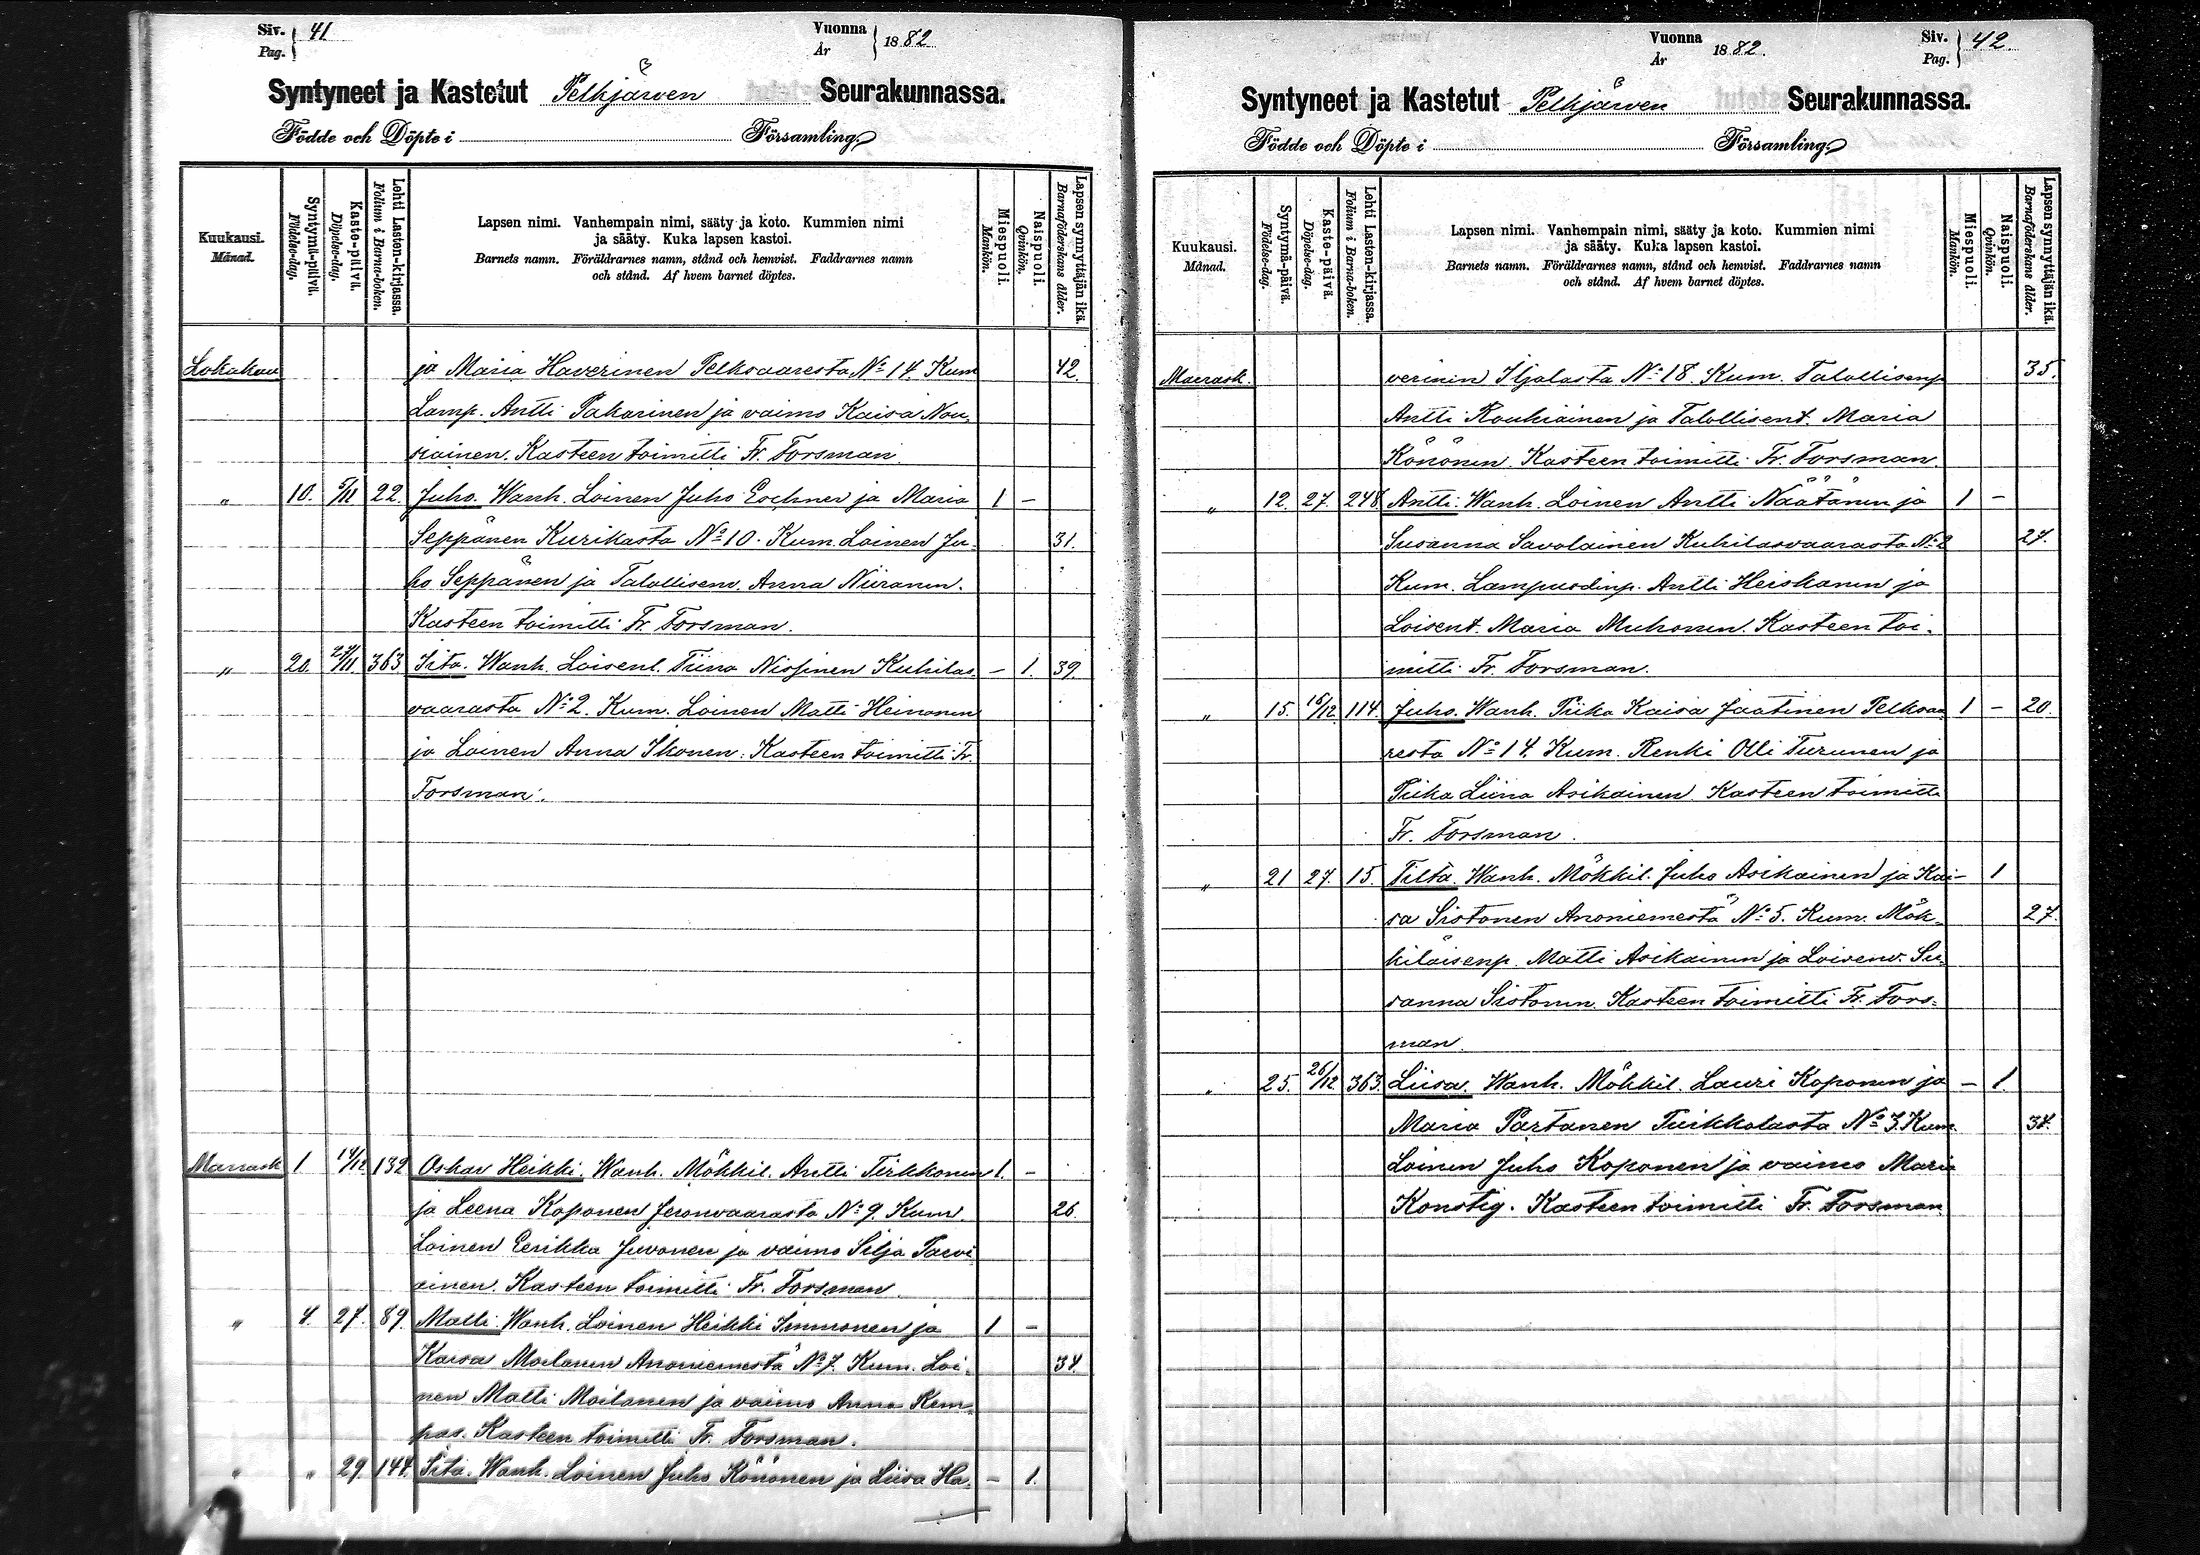 Siv. 41 Vuonna 1882
Pag. År
Syntyneet ja Kastetut Pelkjärven Seurakunnassa.
Födde och Döpte i Församling.
Kuukausi. Månad.
Syntymä-päivä. Födelse-dag.
Kaste-päivä. Döpelse-dag.
Lehti Lasten-kirjassa. Folium i Barna-boken.
Lapsen nimi. Vanhempain nimi, sääty ja koto. Kummien nimi
ja sääty. Kuka lapsen kastoi.
Barnets namn. Föräldrarnes namn, stånd och hemvist. Faddrarnes namn
och stånd. Af hvem barnet döptes.
Miespuoli. Mankön.
Naispuoli. Qvinkön.
Lapsen synnyttäjän ikä. Barnaföderskans ålder.
Lokakuu ja Maria Haverinen Pelkvaaresta No 14. Kum 42.
Lamp. Antti Pakarinen ja vaimo Kaisa Nou-
siainen. Kasteen toimitti Fr. Forsman.
" 10. 5/11 22. Juho. Wanh. Loinen Juho Eochner ja Maria 1 –
Seppänen Kurikasta No 10. Kum. Loinen Ju- 31.
ho Seppänen ja Talollisenv. Anna Niiranen.
Kasteen toimitti Fr. Forsman.
" 20. 27/11. 363 Iita. Wanh. Loisent. Tiina Nissinen Kuhilas- – 1. 39.
vaarasta No 2. Kum. Loinen Matti Heinonen
ja Loinen Anna Ikonen. Kasteen toimitti Fr.
Forsman.
Marrask 1 19/12 132 Oskar Heikki. Wanh. Mökkil. Antti Tirkkonen 1. –
ja Leena Koponen Jeronvaarasta No 9. Kum. 26.
Loinen Eerikka Juvonen ja vaimo Silja Tarvi
ainen. Kasteen toimitti Fr. Forsman.
" 4. 27. 89. Matti. Wanh. Loinen Heikki Immonen ja 1 –
Kaisa Moilanen Anoniemestä No 7. Kum. Loi- 34.
nen Matti Moilanen ja vaimo Anna Kem-
pas. Kasteen toimitti Fr. Forsman.
" " 29. 144. Iita. Wanh. Loinen Juho Könönen ja Liisa Ha- – 1.
Vuonna 1882. Siv. 42.
År Pag.
Syntyneet ja Kastetut Pelkjärven Seurakunnassa.
Födde och Döpte i Församling.
Kuukausi. Månad.
Syntymä-päivä. Födelse-dag.
Kaste-päivä. Döpelse-dag.
Lehti Lasten-kirjassa. Folium i Barna-boken.
Lapsen nimi. Vanhempain nimi, sääty ja koto. Kummien nimi
ja sääty. Kuka lapsen kastoi.
Barnets namn. Föräldrarnes namn, stånd och hemvist. Faddrarnes namn
och stånd. Af hvem barnet döptes.
Miespuoli. Mankön.
Naispuoli. Qvinkön.
Lapsen synnyttäjän ikä. Barnaföderskans ålder.
Marrask. verinen Iljalasta No 18. Kum. Talollisenp. 35.
Antti Rouhiainen ja Talollisent. Maria
Könönen. Kasteen toimitti Fr. Forsman.
" 12. 27. 248. Antti. Wanh. Loinen Antti Näätänen ja 1 –
Susanna Savolainen Kuhilasvaarasta No 2 27.
Kum. Lampuodinp. Antti Heiskanen ja
Loisent. Maria Muhonen. Kasteen toi-
mitti Fr. Forsman.
" 15. 16/12 114. Juho. Wanh. Piika Kaisa Jaatinen Pelkvaa 1 – 20.
resta No 14. Kum. Renki Olli Turunen ja
Piika Liina Asikainen. Kasteen toimitti
Fr. Forsman.
" 21 27. 15. Tilta. Wanh. Mökkil. Juho Asikainen ja Kai- – 1
sa Sistonen Anoniemestä No 5. Kum. Mök- 27.
kiläisenp. Matti Asikainen ja Loisenv. Su-
sanna Sistonen. Kasteen toimitti Fr. Fors-
man.
" 25. 26/12 363. Liisa. Wanh. Mökkil. Lauri Koponen ja – 1.
Maria Partanen Tuikkalasta No 3. Kum. 34.
Loinen Juho Koponen ja vaimo Maria
Konstig. Kasteen toimitti Fr. Forsman